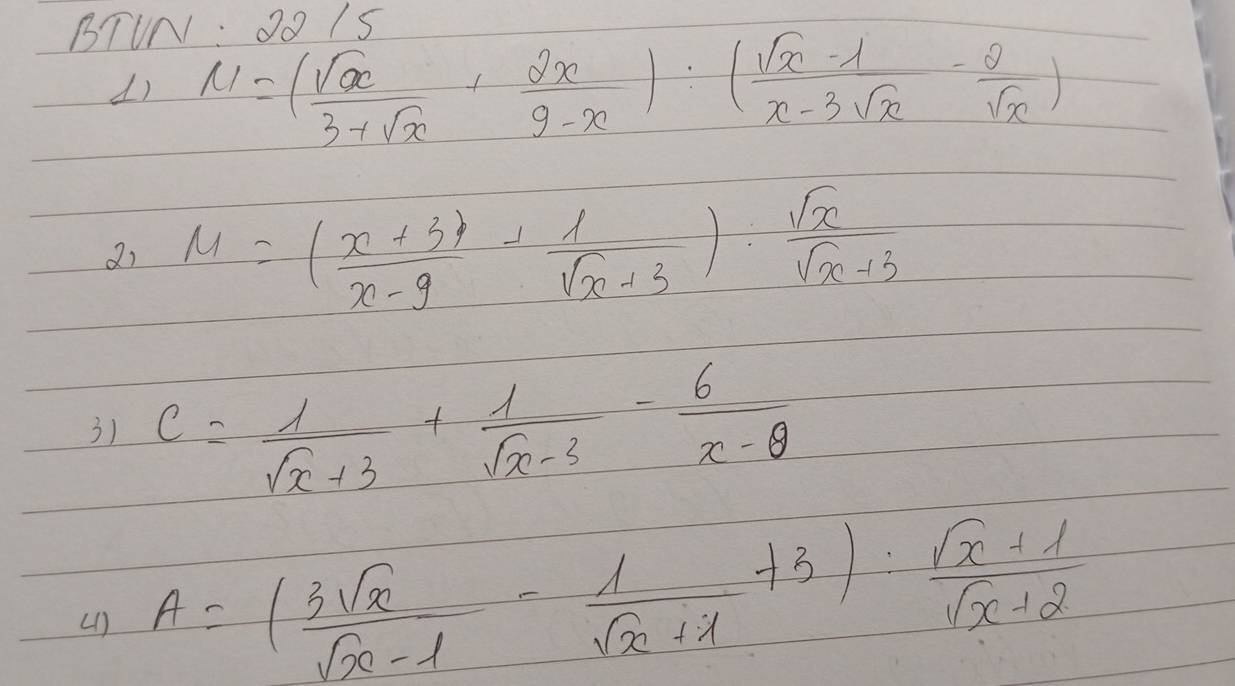 BTVN: 22/5
1) M = (√x/(3+√x) + 2x/(9-x)) : ((√x - 1)/(x - 3√x) - 2/√x)
2) M = ((x+3)/(x-9) + 1/(√x+3)) : √x/(√x+3)
3) C = 1/(√x+3) + 1/(√x-3) - 6/(x-9)
4) A = (3√x/(√x-1) - 1/(√x+1) + 3) : (√x+1)/(√x+2)